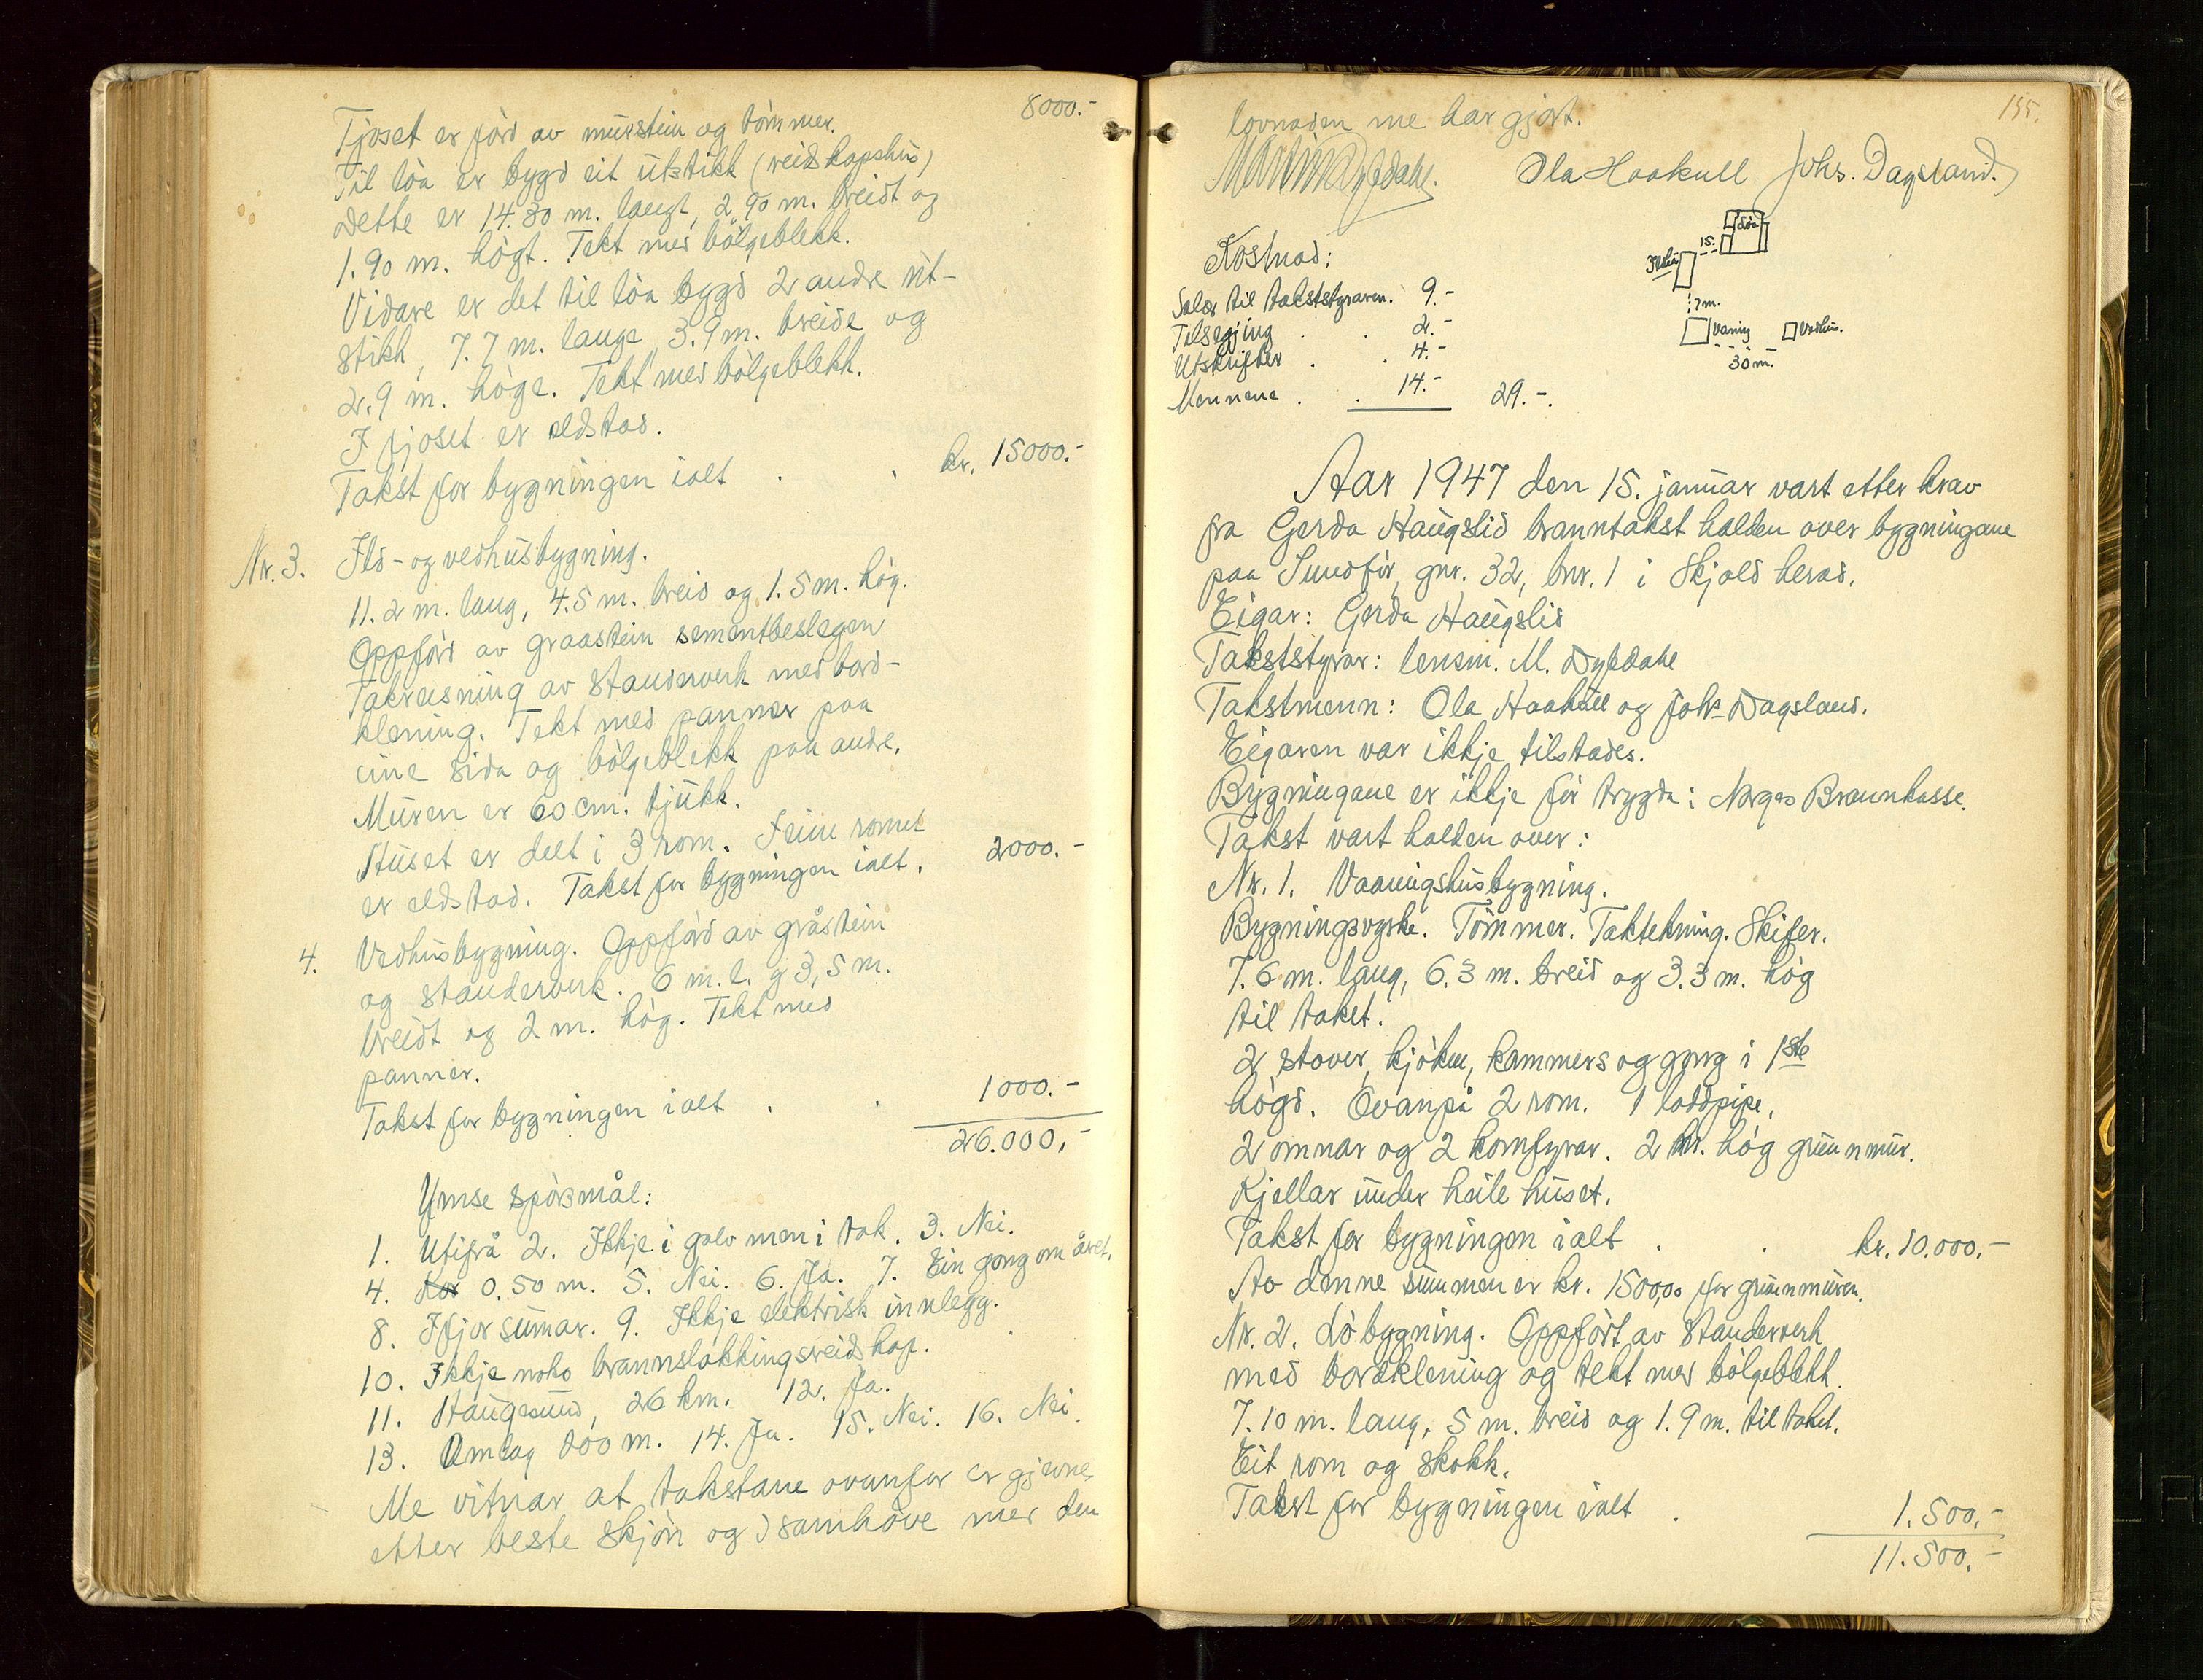 8000.-
Fjoset er förd av murstein og tömmer.
Til löa er bygd eit utstikk (reidskapshus)
Dette er 14.30 m. langt, 2,90 m. breidt og
1.90 m. högt. Tekt med bölgeblekk.
Vidare er det til löa bygd 2 andre ut-
stikk, 7.7 m. lange 3.9 m. breide og
2.9 m. höge. Tekt med bölgeblekk.
I fjoset er eldstad.
Takst for bygningen ialt . . kr. 15000.-
Nr. 3. Ild- og vedhusbygning.
11.2 m. lang, 4.5 m. breid og 1.5 m. hög.
Oppförd av graastein sementbeslegen
Takreisning av standerverk med bord-
klening. Tekt med panner paa
eine sida og bölgeblekk paa andre.
Muren er 60 cm. tjukk.
Huset er delt i 3 rom. I eine romet
er eldstad. Takst for bygningen ialt. 2000.-
4. Vedhusbygning. Oppförd av gråstein
og standerverk. 6 m. l. g 3,5 m.
breidt og 2 m. hög. Tekt med
panner.
Takst for bygningen ialt . . 1000.-
26.000.-
Ymse spörsmål:
1. Utifrå 2. Ikkje i golv men i tak. 3. Nei.
4. 0.50 m. 5. Nei. 6. Ja. 7. Ein gong om året.
8. Ifjor sumar. 9. Ikkje elektrisk innlegg.
10. Ikkje noko brannslokkingsreidskap.
11. Haugesund, 26 km. 12. Ja.
13. Umlag 100 m. 14. Ja. 15. Nei. 16. Nei.
Me vitnar at takstane ovanfor er gjevne
etter beste skjön og i samhöve med den
155.
lovnaden me har gjort.
Ola Haakull Johs. Dagsland.
Löa
15.
Ildhus
7 m.
Vaaning Vedhus.
30 m.
Kostnad:
Salær til takststyraren. 9.-
Tilsegjing . . 2.-
Utskrifter . . 4.-
Mennene . . 14.- 29.-.
Aar 1947 den 15. januar vart etter krav
fra Gerda Haugslid branntakst halden over bygningane
paa Sundför, gnr. 32, bnr. 1 i Skjold herad.
Eigar: Gerda Haugslid
Takststyrar: lensm. M. Dybdahl
Takstmenn: Ola Haakull og Johs Dagsland.
Eigaren var ikkje tilstades.
Bygningane er ikkje för trygda i Norges Brannkasse.
Takst vart halden over:
Nr. 1. Vaaningshusbygning.
Bygningsvyrke. Tömmer. Taktekning. Skifer.
7.6 m. lang, 6.3 m. breid og 3.3 m. hög
til taket.
2 stover, kjöken, kammers og gang i 1ste
högd. Ovanpå 2 rom. 1 loddpipe,
2 omnar og 2 komfyrar. 2 m. hög grunnmur.
Kjellar under heile huset.
Takst for bygningen ialt . . kr. 10.000.-
Av denne summen er kr. 1500,00 for grunnmuren.
Nr. 2. Löbygning. Oppfört av standerverk
med bordklening og tekt med bölgeblekk.
7.10 m. lang, 5 m. breid og 1.9 m. til taket.
Eit rom og skokk.
Takst for bygningen ialt . 1.500.-
11.500.-